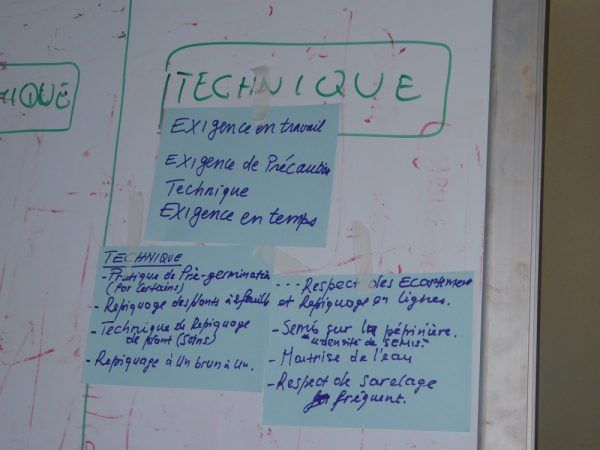 HIQUE
TECHNIQUE
EXIGence en travail
EXIGence de Précaution
Technique
EXIGence en temps
TECHNIQUE
- Pratique de Pré-germination
(Par Certains)
- Repiquage des plants à 2 feuilles
- Technique de Repiquage
de plant (Soins)
- Repiquage à Un brun à Un.
... Respect des Ecartement
et Repiquage en lignes.
- Semis sur la pépinière.
"densité de semis"
- Maitrise de l'eau
- Respect de Sarclage
fréquent.